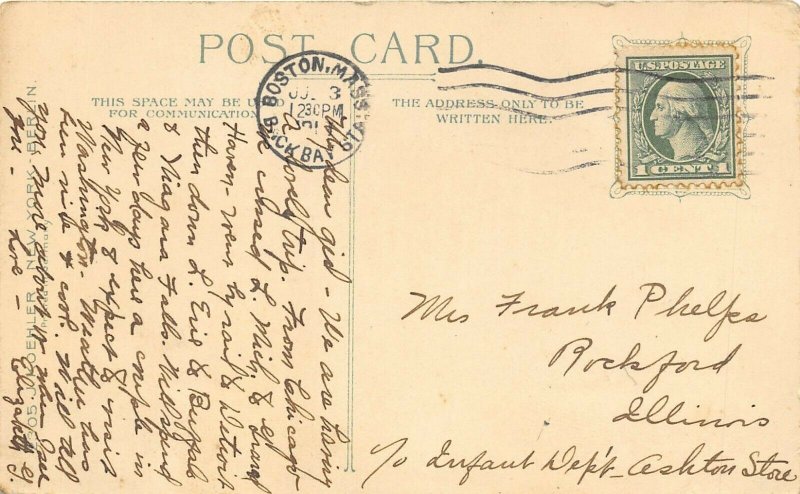 POST CARD.
THIS SPACE MAY BE
FOR COMMUNICATION
THE ADDRESS ONLY TO BE
WRITTEN HERE.
BOSTON, MASS.
3
1230PM
BACK BAY STA.
U.S. POSTAGE
1 CENT 1
My dear girl - We are having
a lovely trip. From Chicago
we crossed L. Mich. to Grand
Haven - went by rail to Detroit
then down L. Erie to Buffalo
& Niagara Falls. Will spend
a few days here a couple in
New York & expect to visit
Washington. Weather has
been nice & cool. Will tell
you more about it when I see
you - Love - Elizabeth
KOEHLER, NEW YORK, BERLIN.
Mrs Frank Phelps
Rockford
Illinois
c/o Infant Dep't - Ashton Store